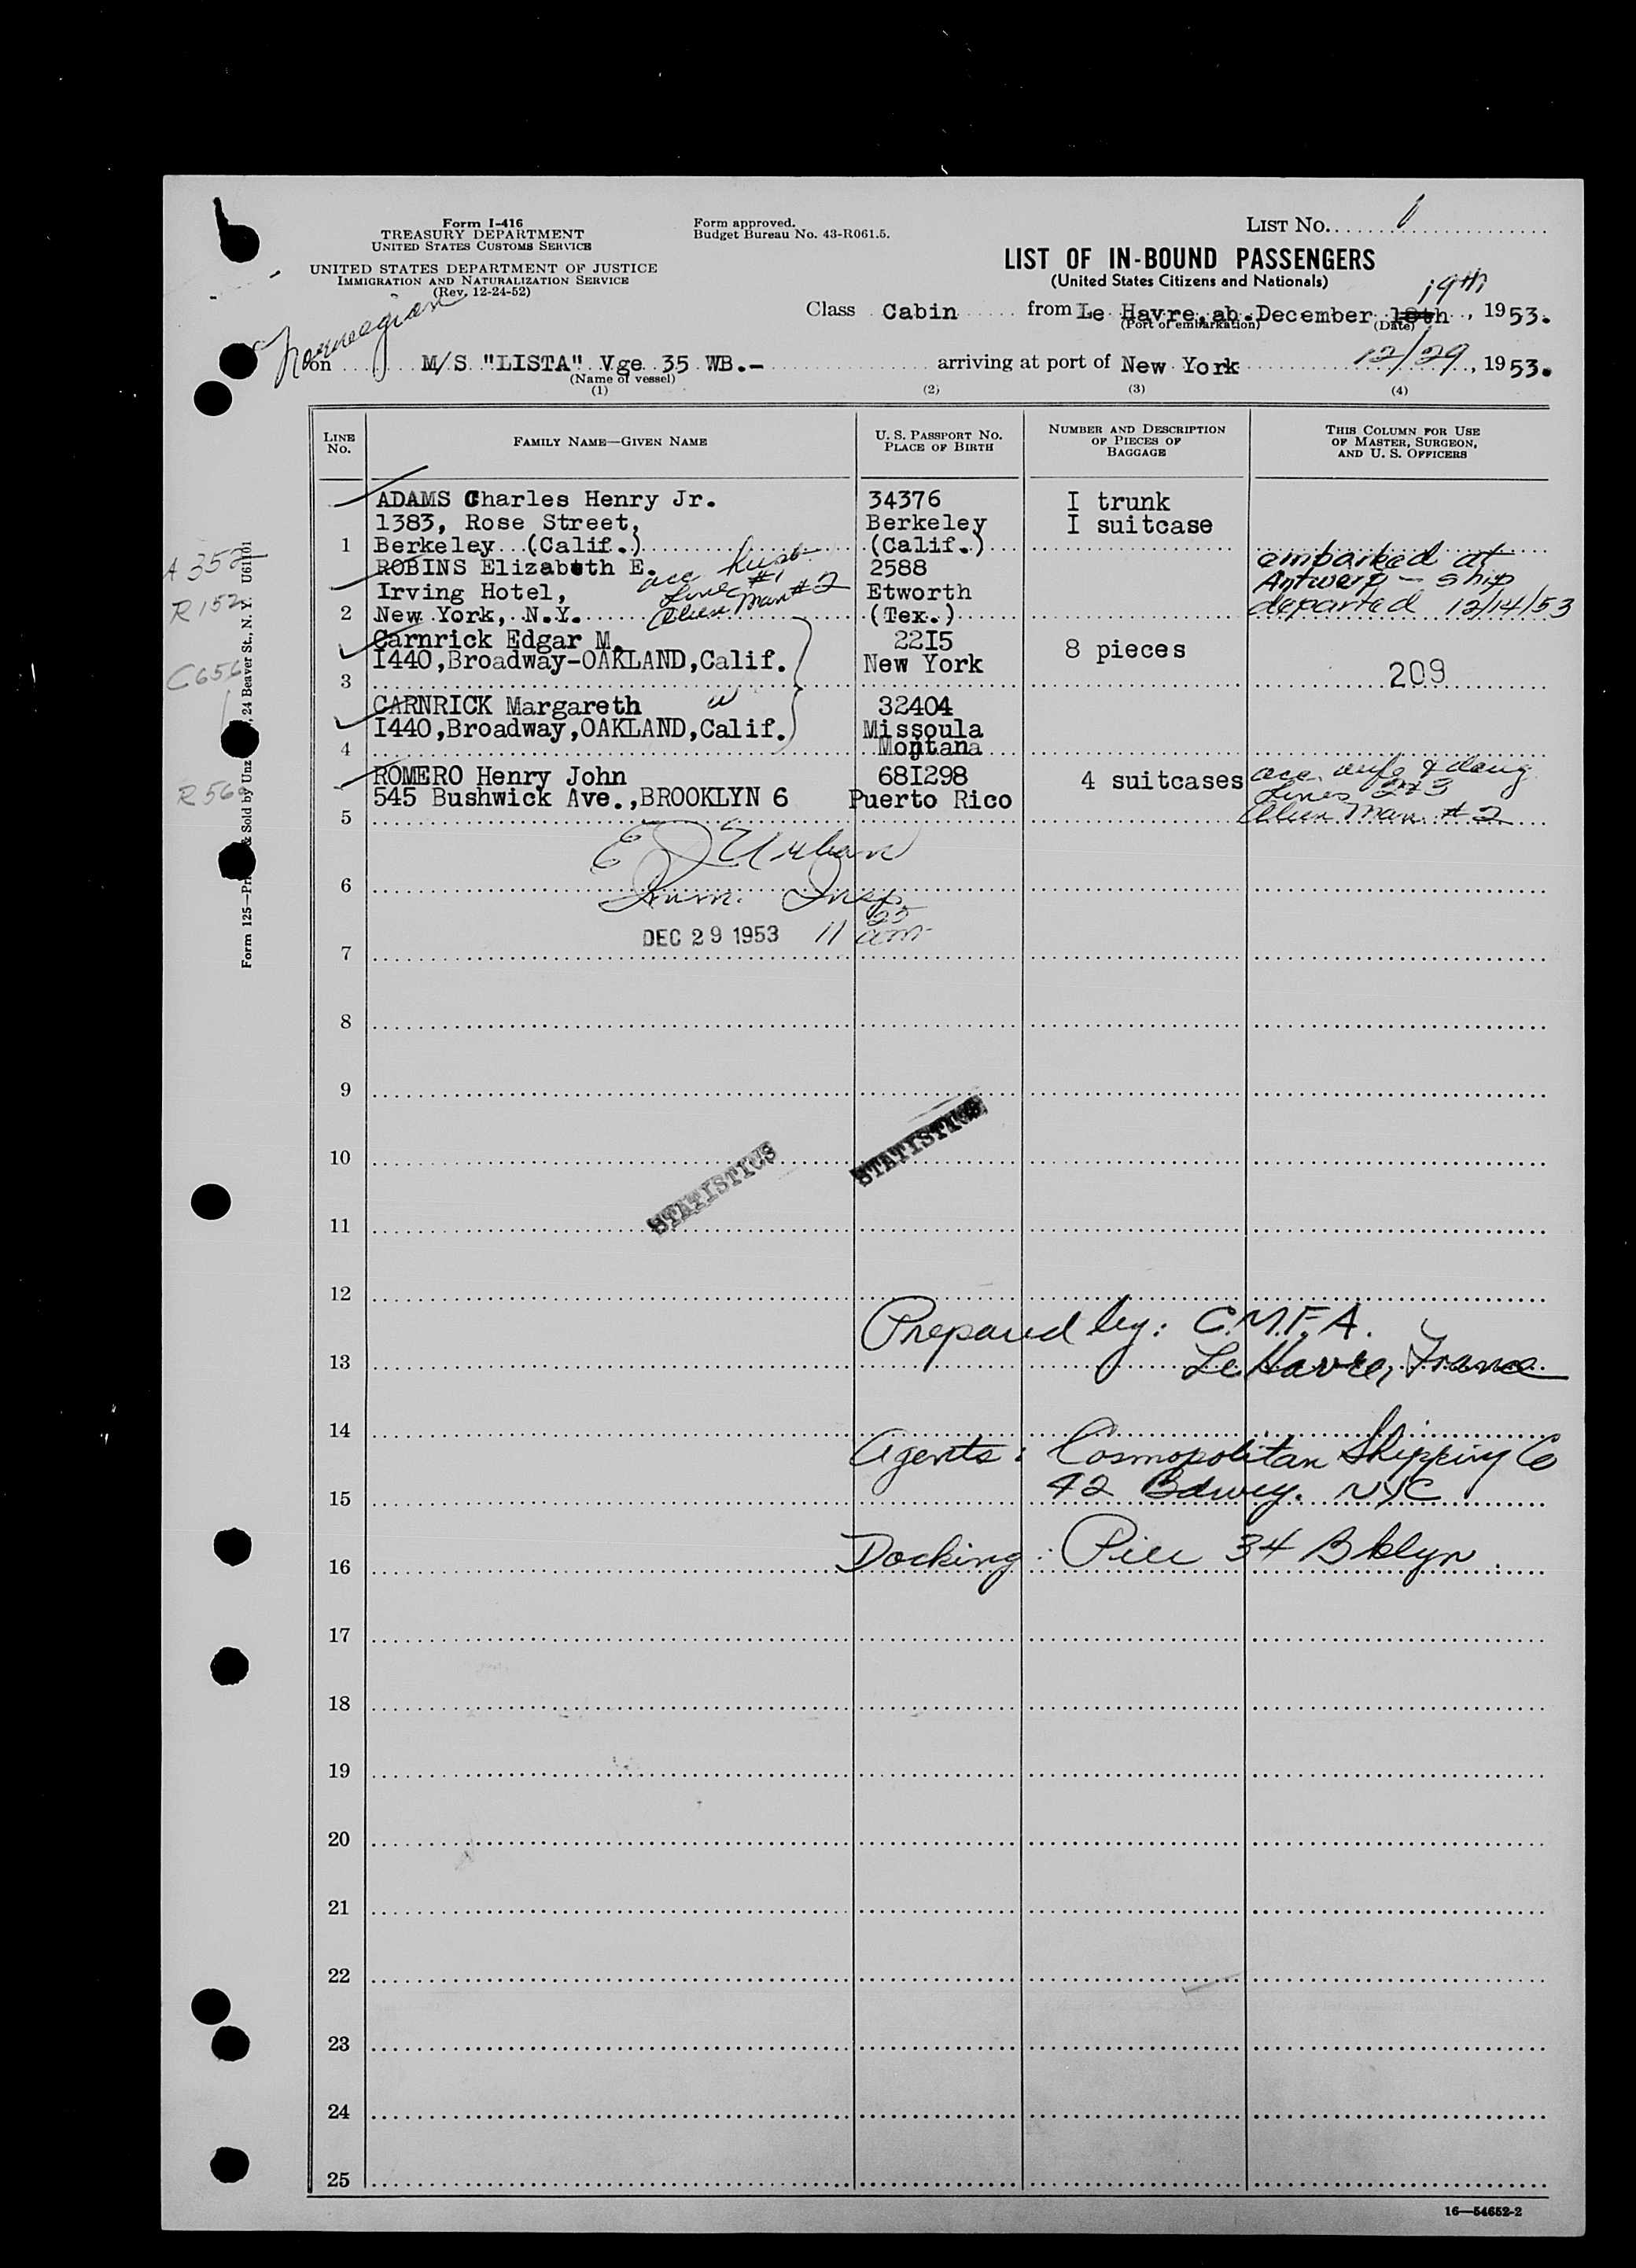 Form I-416
TREASURY DEPARTMENT
UNITED STATES CUSTOMS SERVICE
UNITED STATES DEPARTMENT OF JUSTICE
IMMIGRATION AND NATURALIZATION SERVICE
(Rev. 12-24-52)
Form approved.
Budget Bureau No. 43-R061.5.
LIST NO. 1
LIST OF IN-BOUND PASSENGERS
(United States Citizens and Nationals)
19th
Class Cabin from Le Havre, ab. December 18th, 1953.
(Port of embarkation) (Date)
Norwegian
on M/S "LISTA" Vge 35 WB.- arriving at port of New York 12/29, 1953.
(Name of vessel)
(1) (2) (3) (4)
LINE NO. FAMILY NAME—GIVEN NAME U. S. PASSPORT NO. PLACE OF BIRTH NUMBER AND DESCRIPTION OF PIECES OF BAGGAGE THIS COLUMN FOR USE OF MASTER, SURGEON, AND U. S. OFFICERS
ADAMS Charles Henry Jr. 34376 I trunk
1383, Rose Street, Berkeley I suitcase
1 Berkeley (Calif.) (Calif.)
A 352
ROBINS Elizabeth E. acc husb 2588 embarked at
Irving Hotel, Line #1 Etworth Antwerp - ship
2 New York, N.Y. Alien Man #2 (Tex.) departed 12/14/53
R 152
Carnrick Edgar M. 22I5 8 pieces
I440,Broadway-OAKLAND,Calif. New York
3 209
C656
CARNRICK Margareth w 32404
I440,Broadway,OAKLAND,Calif. Missoula
4 Montana
ROMERO Henry John 68I298 4 suitcases acc. wife & daug
545 Bushwick Ave.,BROOKLYN 6 Puerto Rico Lines 2+3
5 Alien Man. #2
R 56
E J Urban
6 Imm. Insp.
7 DEC 29 1953 11 25 am
8
9
10
STATISTICS
STATISTICS
11
12
Prepared by: C.M.F.A.
13 Le Havre, France
14
Agents: Cosmopolitan Shipping Co
15 42 Bdwy. NYC
16 Docking: Pier 34 Bklyn
17
18
19
20
21
22
23
24
25
16—54652-2
Form 125—Pr & Sold by Unz , 24 Beaver St., N. Y. U61101